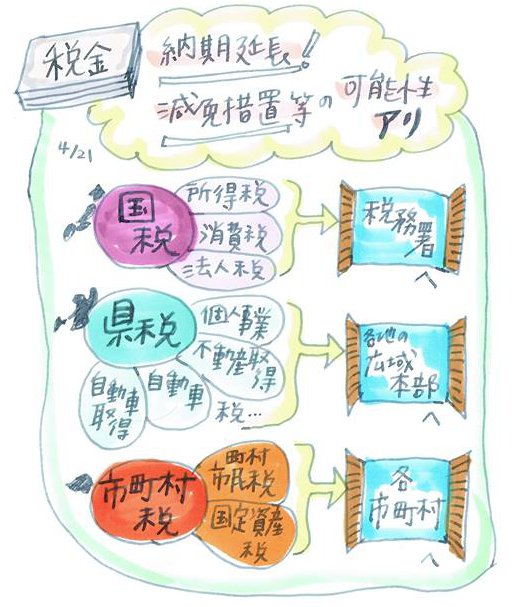 税金
納期延長!
減免措置等の可能性
アリ
4/21
国
税
所得税
消費税
法人税
税務署
へ
県税
個人事業
不動産取
得
自動車
自動車
取得
税…
各地の
広域
本部
へ
市町村
税
町村
市民税
固定資産
税
各
市町村
へ